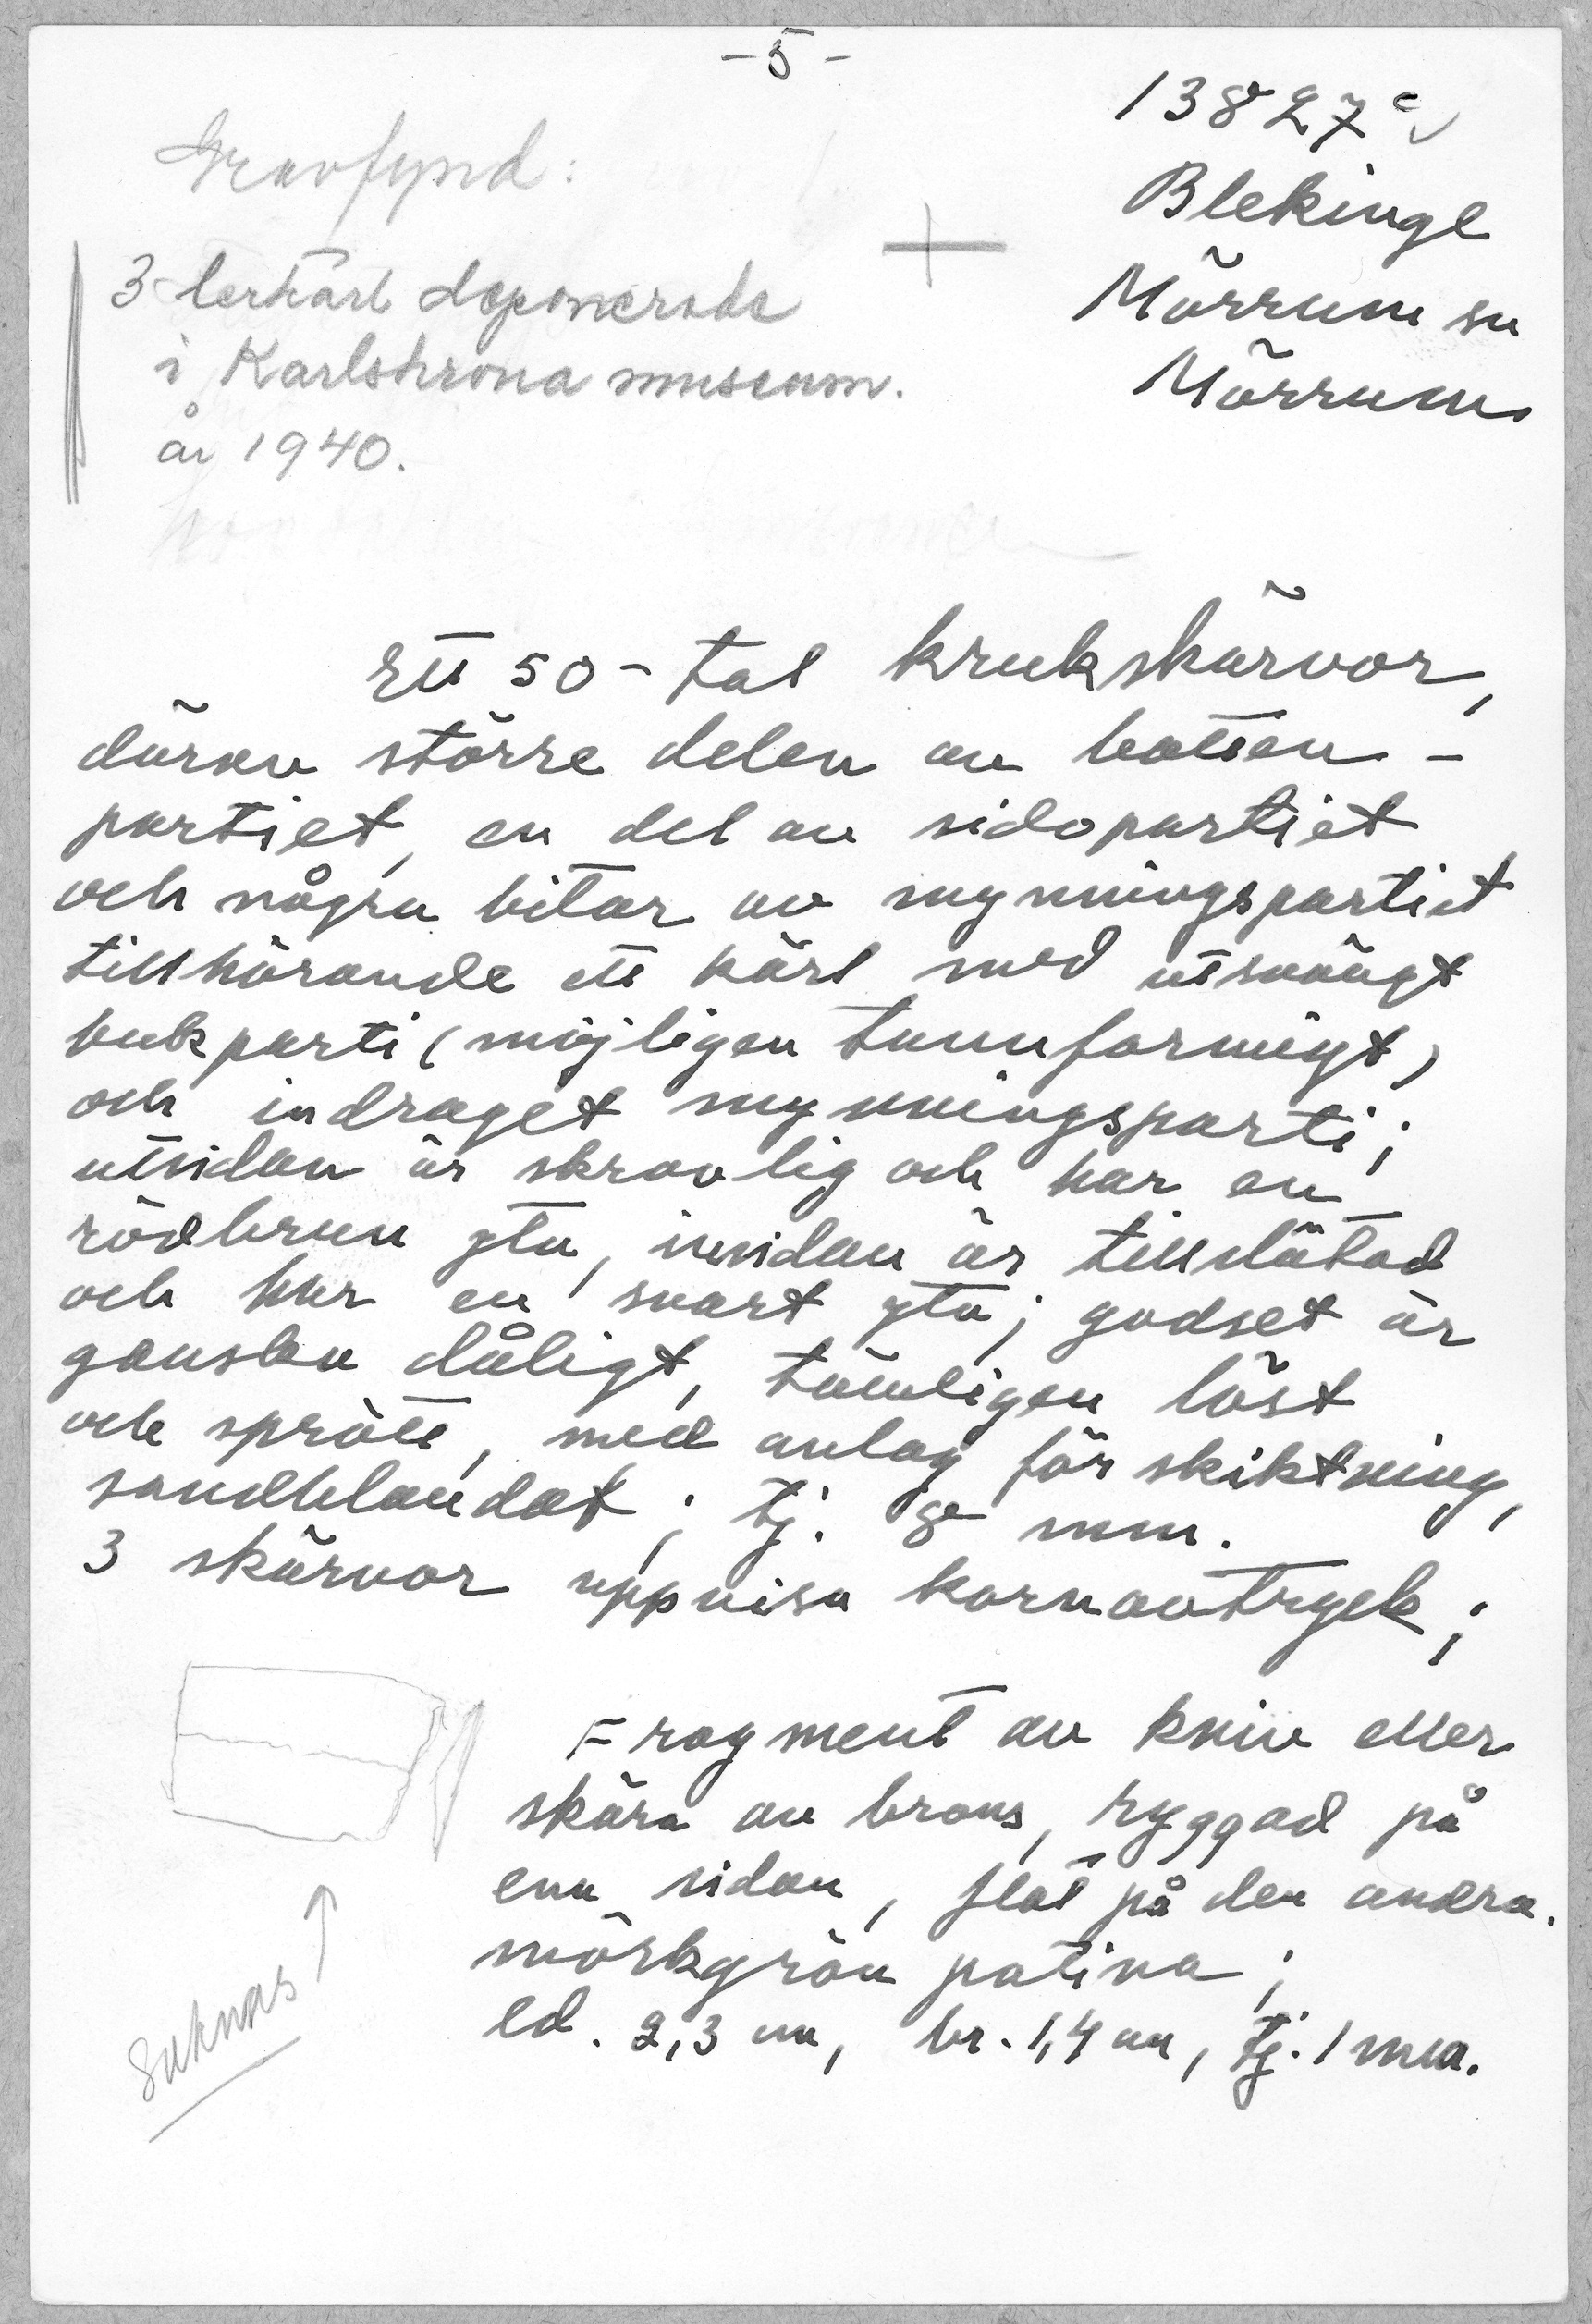 - 5 -
13827 c
Blekinge
Mörrum sn
Mörrum
Gravfynd:
3 lerkärl deponerade
i Karlskrona museum.
år 1940.
Ett 50-tal krukskärvor,
därav större delen av botten-
partiet, en del av sidopartiet
och några bitar av mynningspartiet
tillhörande ett kärl med utsvängt
bukparti (möjligen tunnformigt)
och indraget mynningsparti;
utsidan är skrovlig och har en
rödbrun yta, insidan är tillslätad
och har en svart yta; godset är
ganska dåligt, tämligen löst
och sprött, med anlag för skiktning,
sandblandat; tj. 8 mm.
3 skärvor uppvisa kornavtryck;
Fragment av kniv eller
skära av brons, ryggad på
ena sidan, flat på den andra.
mörkgrön patina;
ld. 2,3 cm, br. 1,4 cm, tj. 1 mm.
Saknas ↑